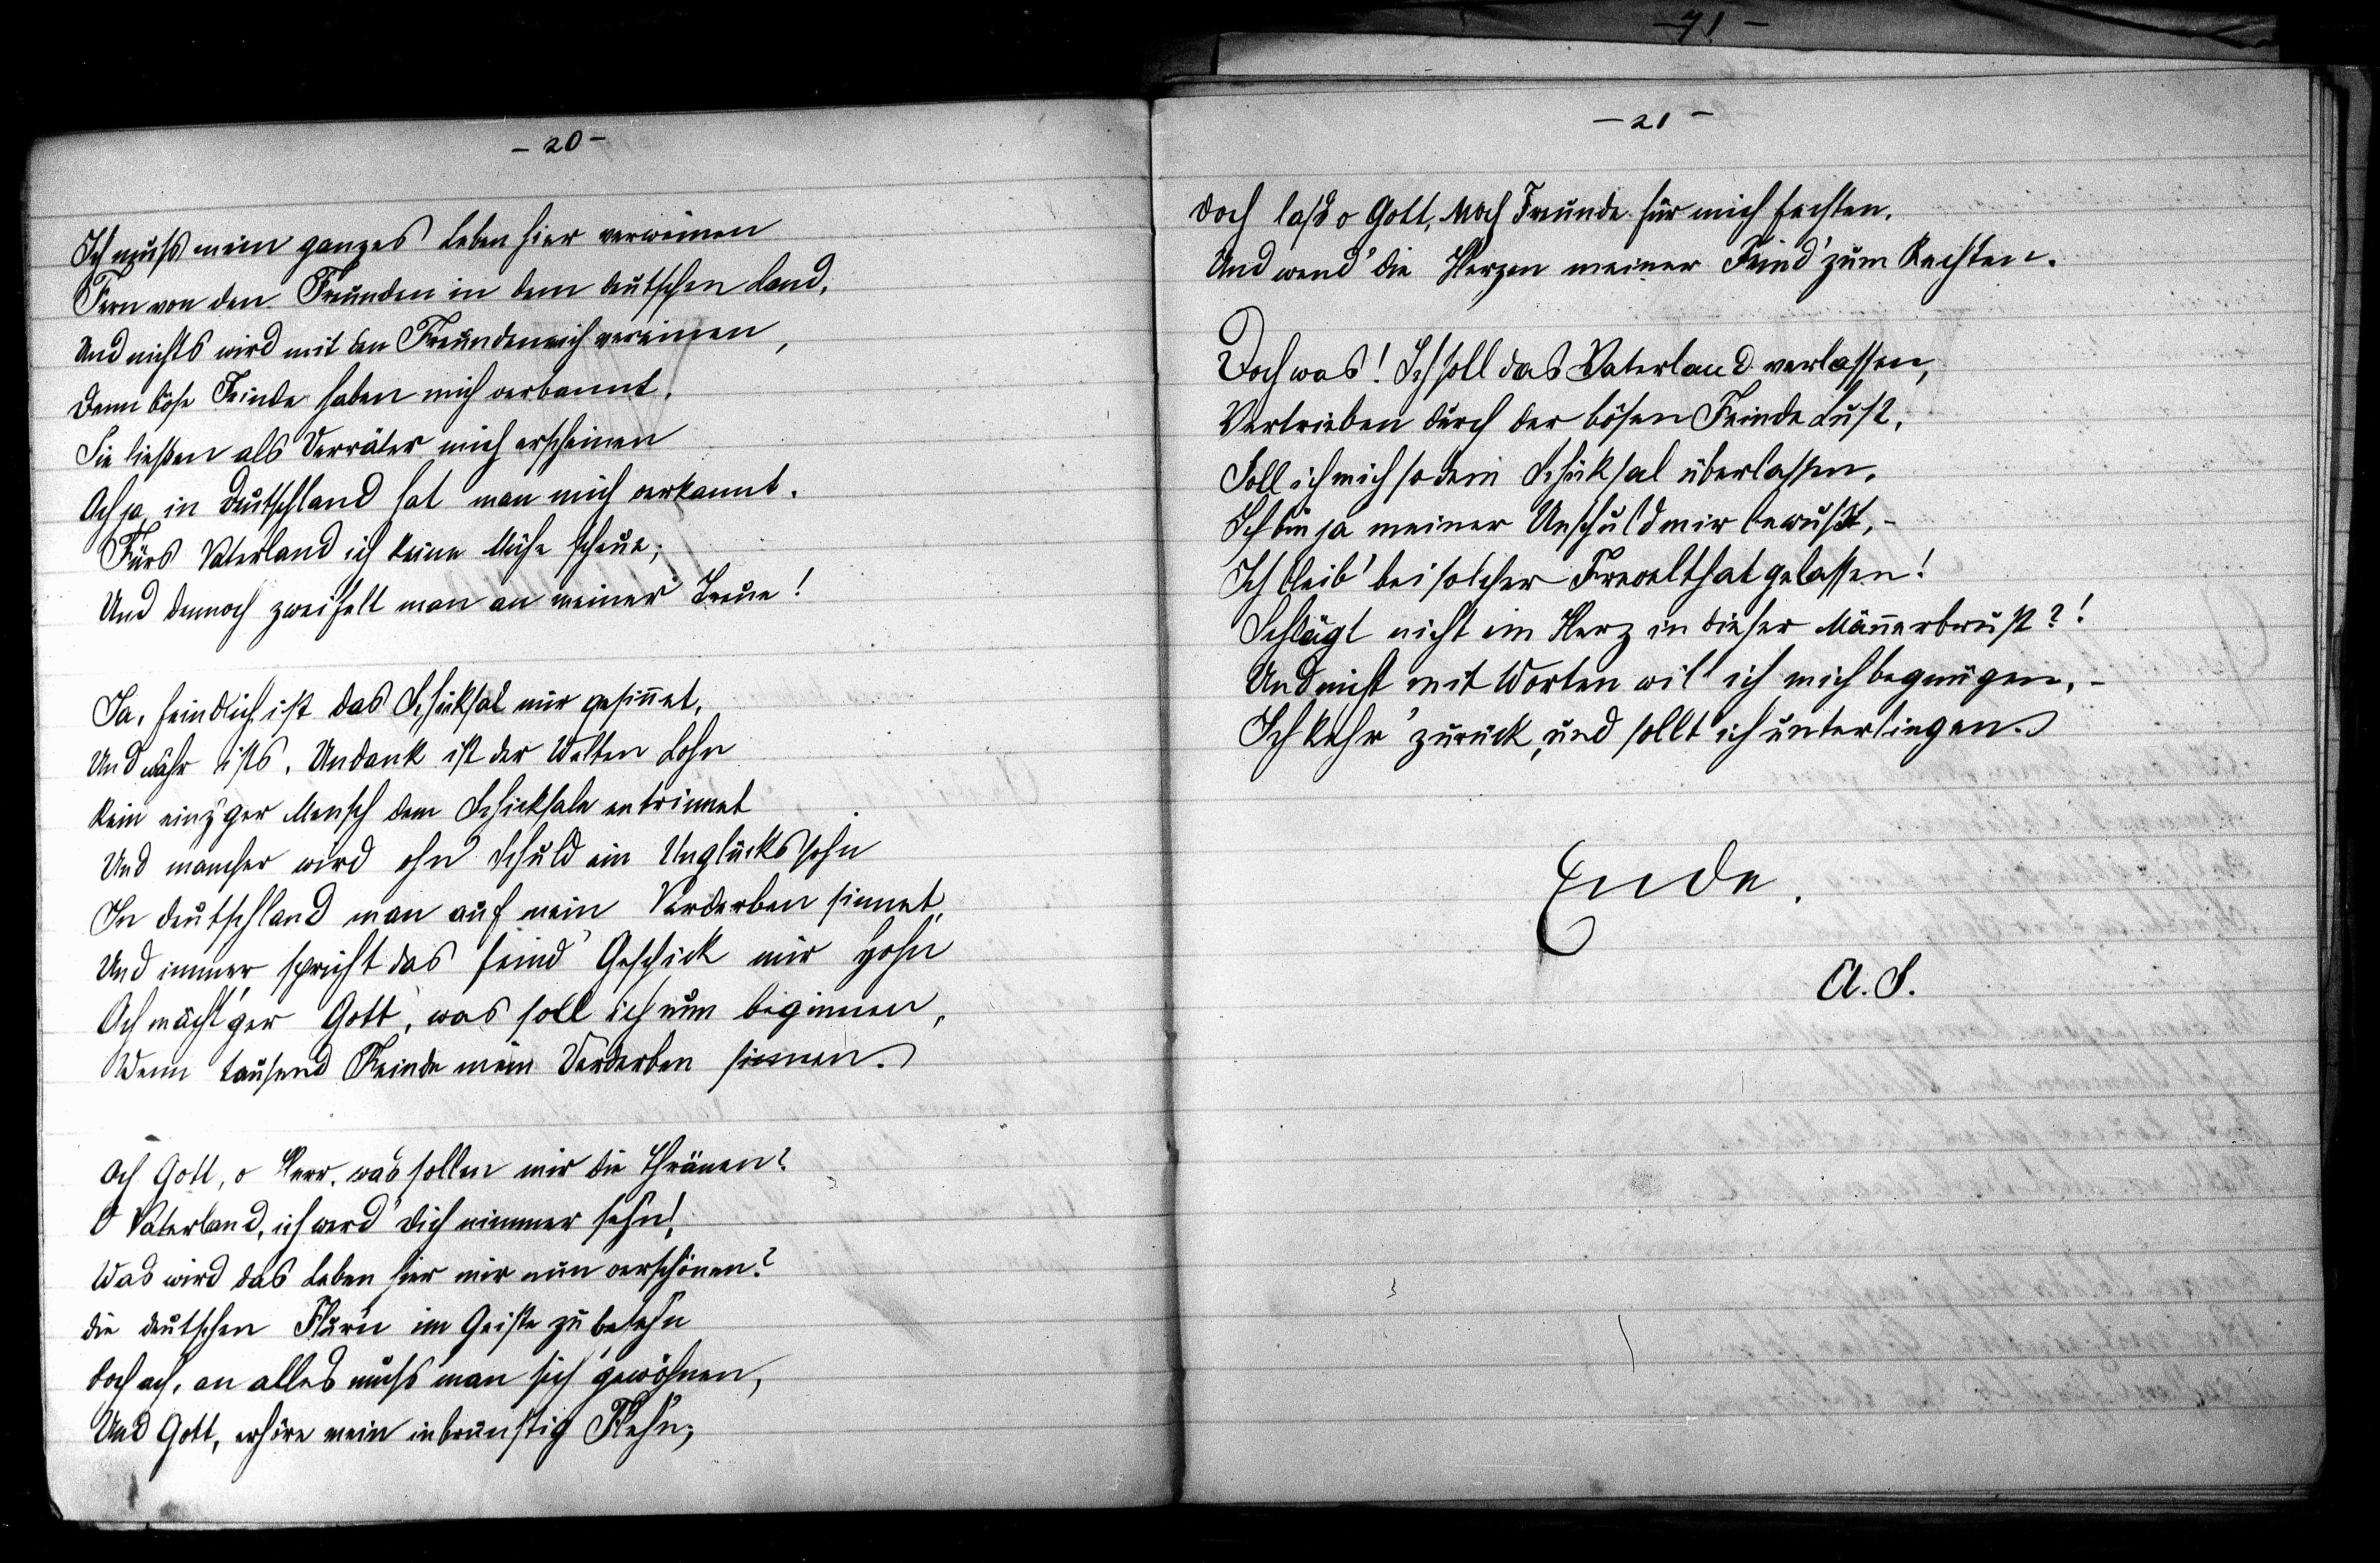 - 20 -
Ich muß mein ganzes Leben hier verweinen
Fern von den Freunden in dem deutschen Land,
Und nichts wird mit den Freunden mich vereinen,
Denn böse Feinde haben mich verbannt.
Sie ließen als Verräter mich erscheinen
Ach ja, in Deutschland hat man mich verkannt.
Fürs Vaterland ich keine Mühe scheue;
Und dennoch zweifelt man an meiner Treue!
Ja, feindlich ist das Schicksal mir gesinnet,
Und wahr ists, Undank ist der Welten Lohn
Kein einz'ger Mensch dem Schicksale entrinnet
Und mancher wird ohn' Schuld ein Unglückssohn
In Deutschland man auf mein Verderben sinnet,
Und immer spricht das feind' Geschick mir Hohn
Ach mächt'ger Gott, was soll ich nun beginnen,
Wenn tausend Feinde mein Verderben sinnen.
Ach Gott, o Herr, was sollen mir die Thränen?
O Vaterland, ich werd' dich nimmer sehn!
Was wird das Leben hier mir nun verschönen?
die deutschen Flur'n im Geiste zu besehn
doch ach, an alles muß man sich gewöhnen,
Und Gott, erhöre mein inbrünstig Flehn;
- 71 -
- 21 -
doch laß o Gott, noch Freunde für mich fechten.
Und wend' die Herzen meiner Feind' zum Rechten.
Doch was! Ich soll das Vaterland verlassen,
Vertrieben durch der bösen Feinde Lust,
Soll ich mich so dem Schicksal überlassen,
Ich bin ja meiner Unschuld mir bewußt, -
Ich bleib' bei solcher Frevelthat gelassen!
Schlägt nicht ein Herz in dieser Män̄erbrust?!
Und nicht mit Worten will ich mich begnügen, -
Ich kehr' zurück, und sollt' ich unterliegen.
Ende.
A. S.